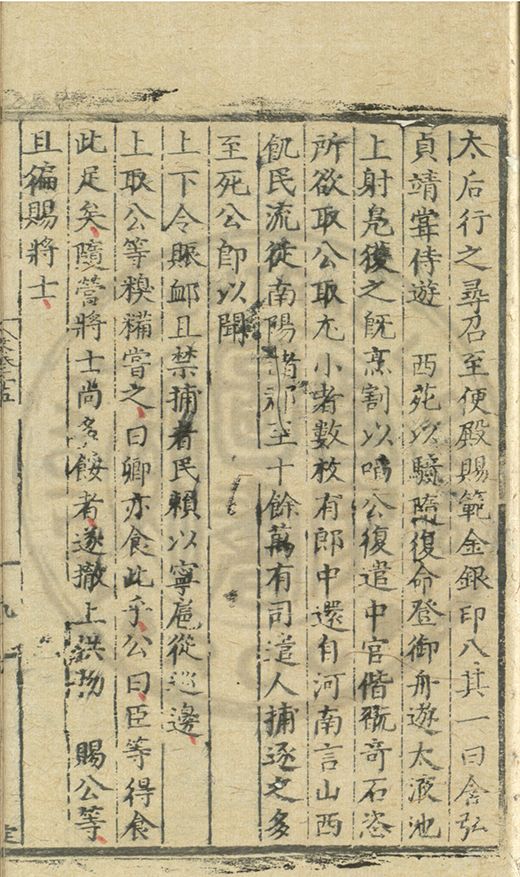 太后行之尋召至便殿賜範金銀印八其一曰含弘
貞靖甞侍遊　西苑以騎隨復命登御舟遊太液池
上射鳬獲之旣烹割以啗公復遣中官偕翫竒石恣
所欲取公取尤小者數枚有郎中還自河南言山西
飢民流徙南陽諸郡至十餘萬有司遣人捕逐之多
至死公卽以聞
上下令賑䘏且禁捕者民賴以寧扈從巡邊
上取公等糗糒嘗之曰卿亦食此乎公曰臣等得食
此足矣隨營將士尚多餒者遂撤上供物　賜公等
且徧賜將士